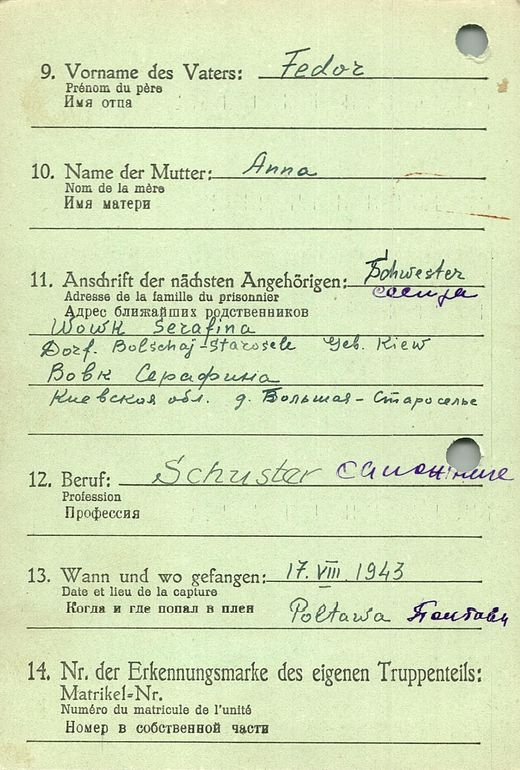 9. Vorname des Vaters: Fedor
Prénom du père
Имя отца
10. Name der Mutter: Anna
Nom de la mère
Имя матери
11. Anschrift der nächsten Angehörigen: Schwester
Adresse de la famille du prisonnier
Адрес ближайших родственников
Wowk Serafina
Dorf. Bolschaj-Starosele Geb. Kiew
Вовк Серафина
Киевская обл. д. Большая-Староселье
12. Beruf: Schuster
Profession
Профессия
13. Wann und wo gefangen: 17. VIII. 1943
Date et lieu de la capture
Когда и где попал в плен Poltawa
14. Nr. der Erkennungsmarke des eigenen Truppenteils:
Matrikel-Nr.
Numéro du matricule de l'unité
Номер в собственной части